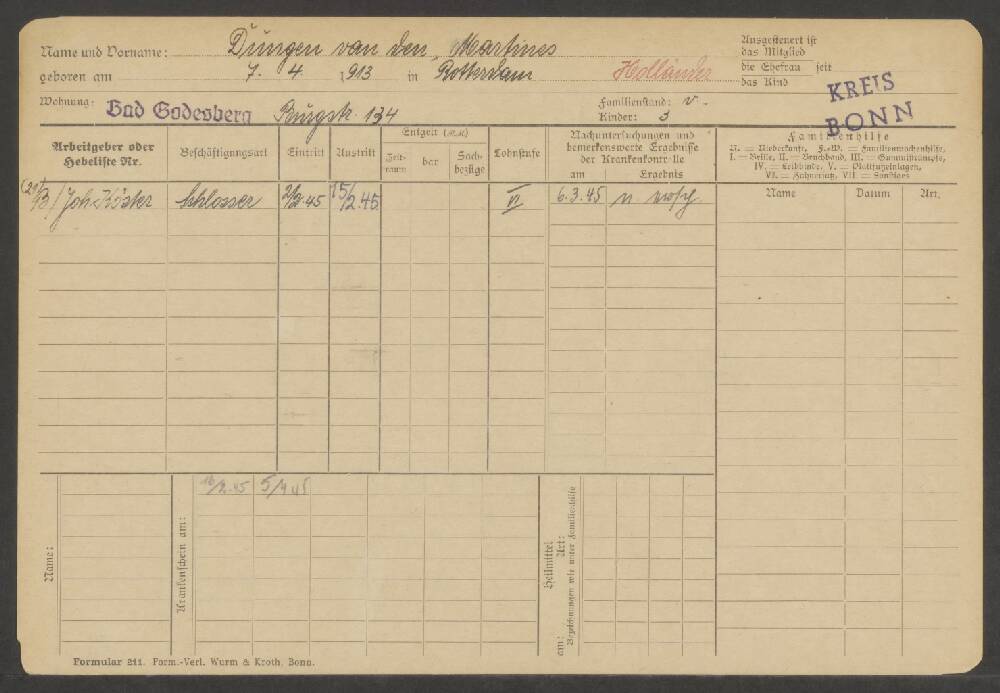 Name und Vorname: Düngen van den, Martines
geboren am 7. 4. 1913 in Rotterdam Holländer
Ausgesteuert ist
das Mitglied
die Ehefrau seit
das Kind
Wohnung: Bad Godesberg Burgstr. 134
Familienstand: v.
Kinder: 3
KREIS
BONN
Arbeitgeber oder
Hebeliste Nr.
Beschäftigungsart
Eintritt
Austritt
Entgelt (RM)
Zeit-
raum
bar
Sach-
bezüge
Lohnstufe
Nachuntersuchungen und
bemerkenswerte Ergebnisse
der Krankenkontrolle
am Ergebnis
Familienhilfe
N. = Niederkunft, F.-W. = Familienwochenhilfe,
I. = Brille, II. = Bruchband, III. = Gummistrümpfe,
IV. = Leibbinde, V. = Plattfußeinlagen,
VI. = Zahnersatz, VII. = Sonstiges
Name Datum Art.
Joh. Köster Schlosser 2/2.45 15/2.45 VI 6.3.45
Name:
Krankenschein am:
16/2.45 5/4 45
Heilmittel
Art:
am:
Bezeichnungen wie unter Familienhilfe
Formular 211. Form.-Verl. Wurm & Kroth, Bonn.